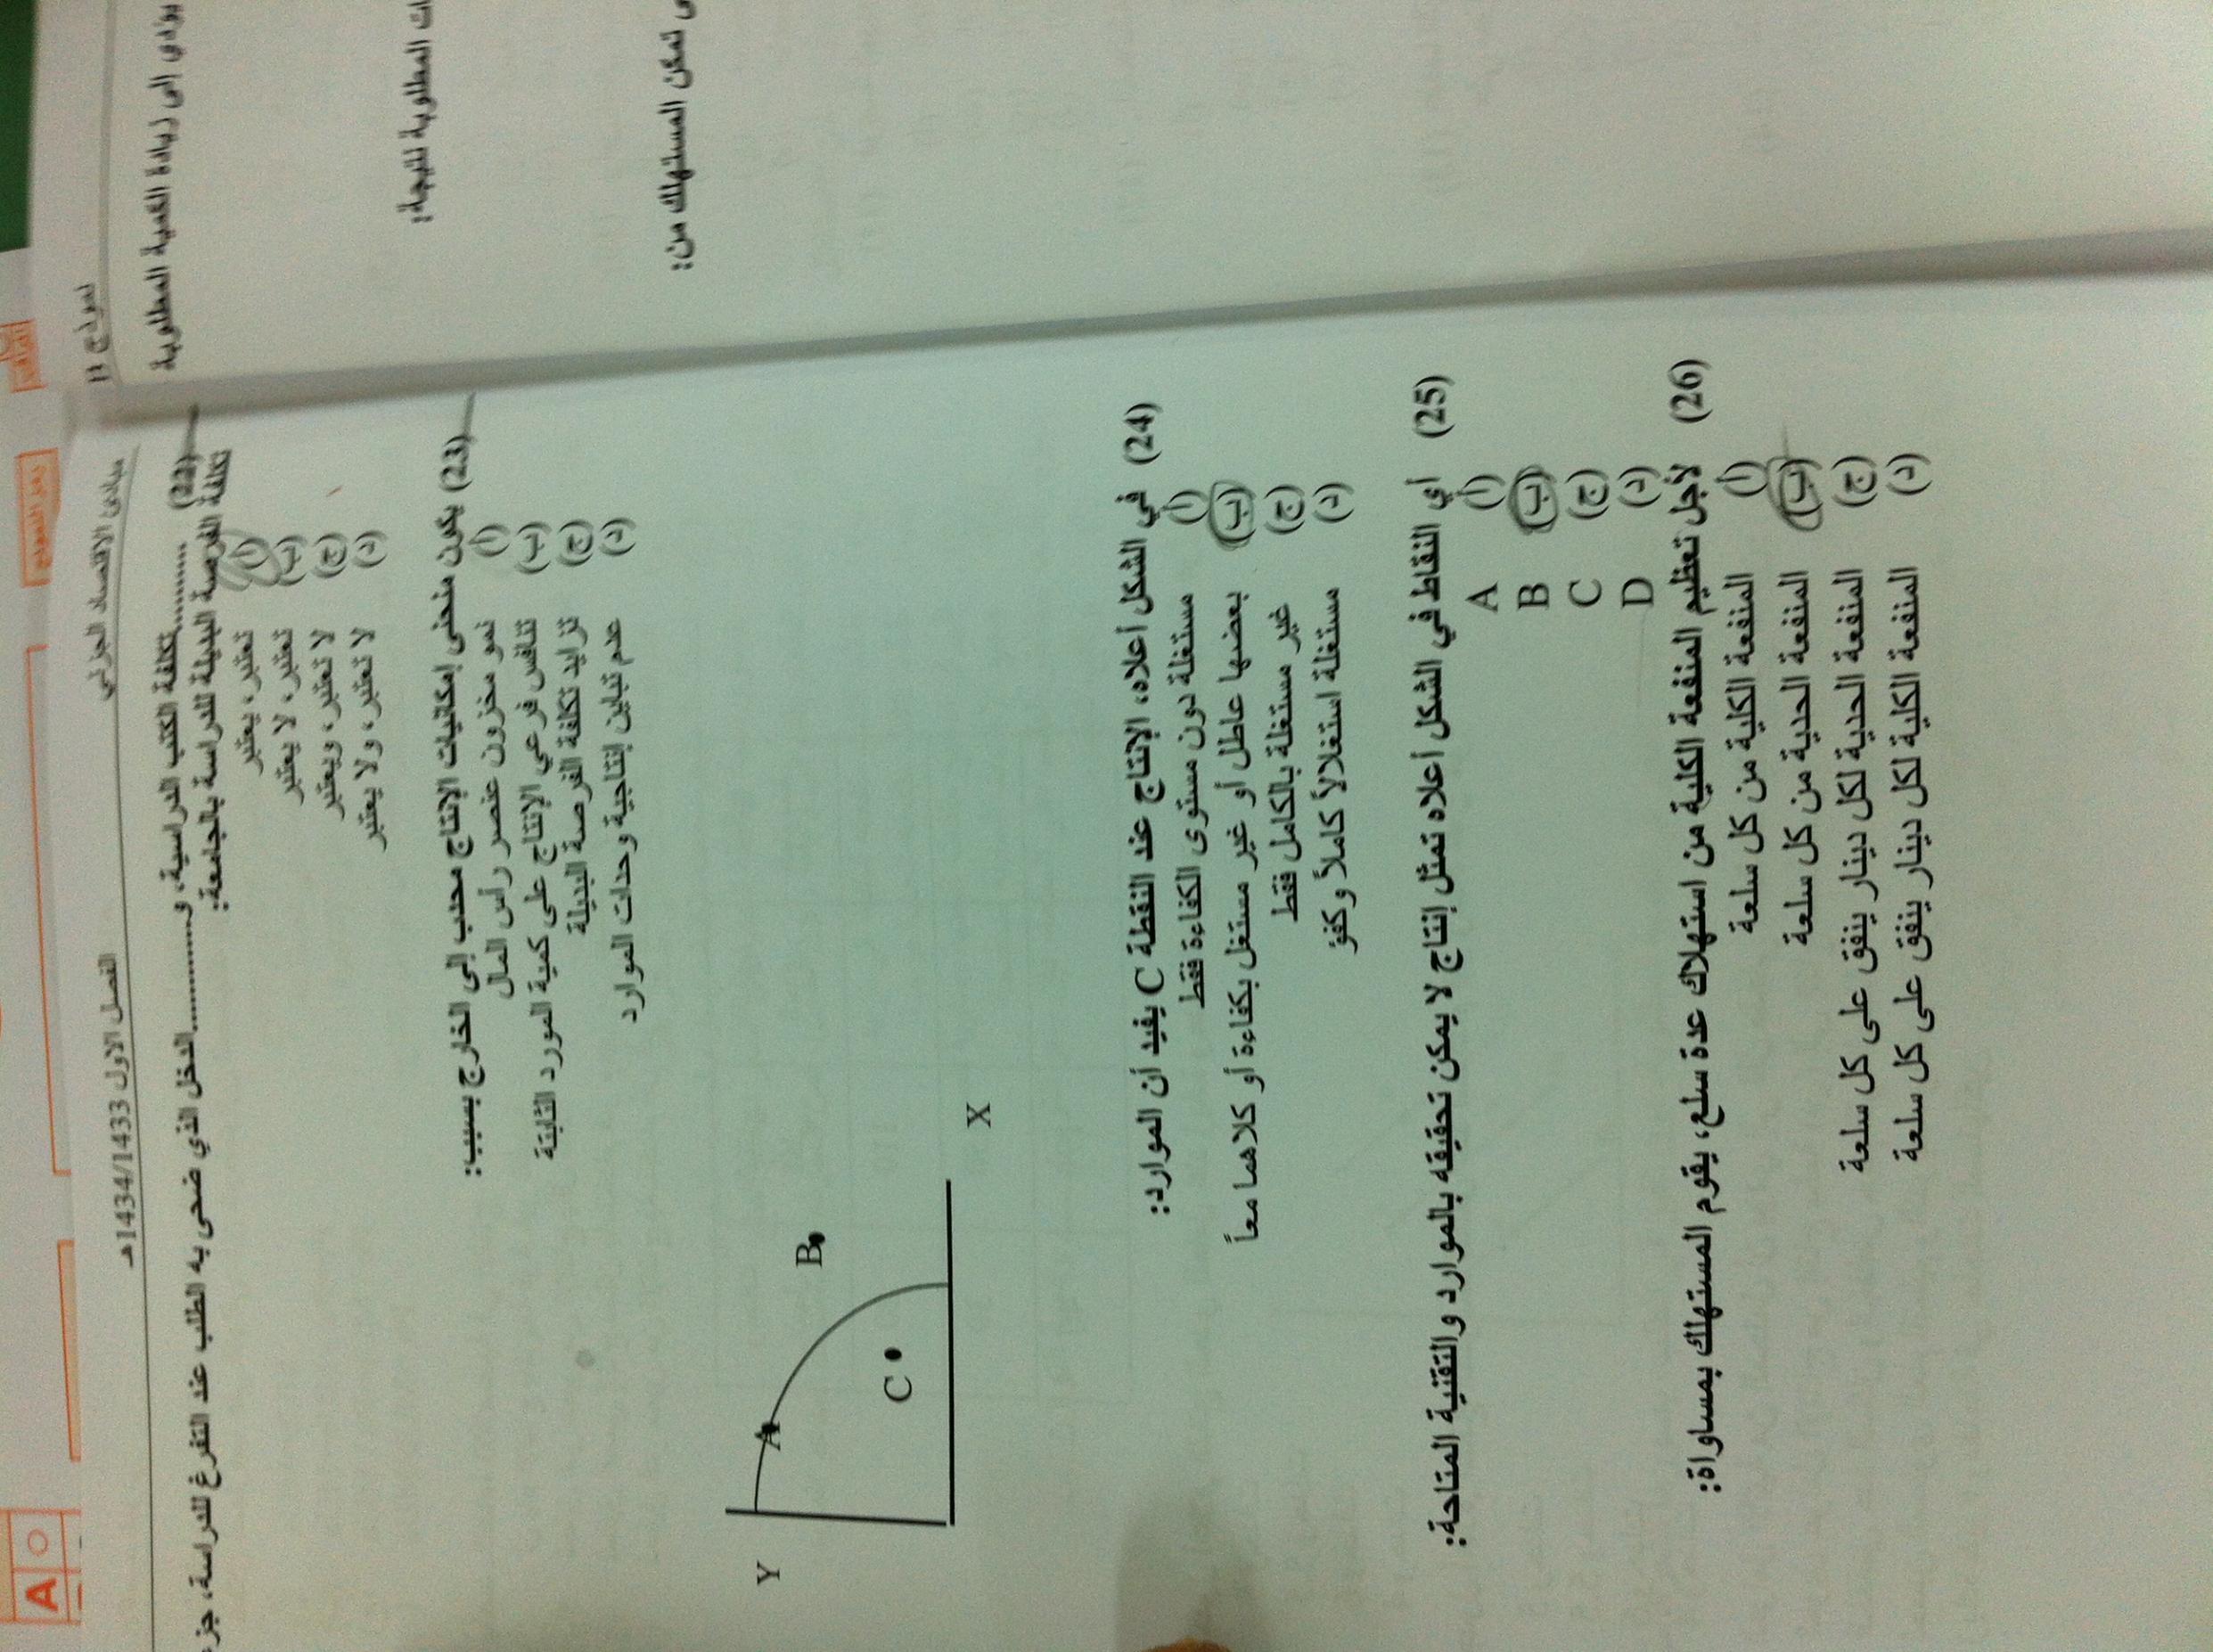 مبادئ الاقتصاد الجزئي
الفصل الاول 1434/1433هـ
(22) .............تكلفة الكتب الدراسية، و..............الدخل الذي ضحى به الطلب عند التفرغ للدراسة،
تكلفة الفرصة البديلة للدراسة بالجامعة:
(أ) تعتبر، يعتبر
(ب) تعتبر، لا يعتبر
(ج) لا تعتبر، ويعتبر
(د) لا تعتبر، ولا يعتبر
(23) يكون منحنى إمكانيات الإنتاج محدب إلى الخارج بسبب:
(أ) نمو مخزون عنصر رأس المال
(ب) تنافس فرعي الإنتاج على كمية المورد الثابتة
(ج) تزايد تكلفة الفرصة البديلة
(د) عدم تباين إنتاجية وحدات الموارد
Y
A
B
C
X
(24) في الشكل أعلاه، الإنتاج عند النقطة C يفيد أن الموارد:
(أ) مستغلة دون مستوى الكفاءة فقط
(ب) بعضها عاطل أو غير مستغل بكفاءة أو كلاهما معاً
(ج) غير مستغلة بالكامل فقط
(د) مستغلة استغلالاً كاملاً وكفؤ
(25) أي النقاط في الشكل أعلاه تمثل إنتاج لا يمكن تحقيقه بالموارد والتقنية المتاحة:
(أ) A
(ب) B
(ج) C
(د) D
(26) لأجل تعظيم المنفعة الكلية من استهلاك عدة سلع، يقوم المستهلك بمساواة:
(أ) المنفعة الكلية من كل سلعة
(ب) المنفعة الحدية من كل سلعة
(ج) المنفعة الحدية لكل دينار ينفق على كل سلعة
(د) المنفعة الكلية لكل دينار ينفق على كل سلعة
يؤدي الى زيادة الكمية المطلوبة
المطلوبة نتيجة:
تمكن المستهلك من:
رمز النموذج
A